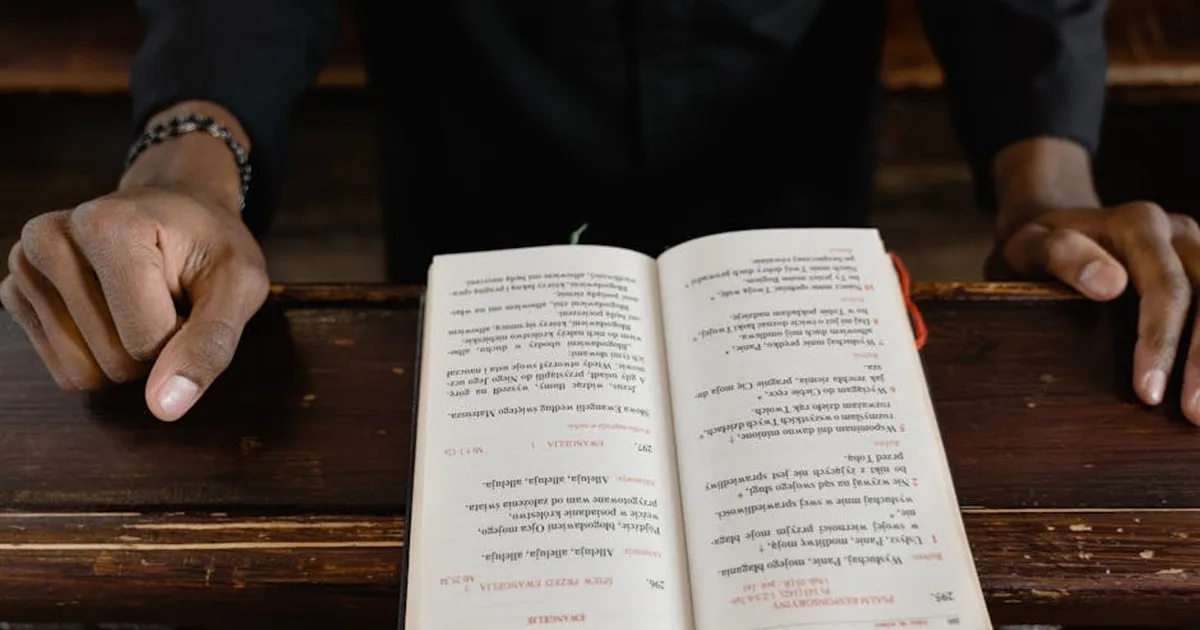 295.
PSALM RESPONSORYJNY
Refren: Wysłuchaj, Panie, mojego błagania.
1 Usłysz, Panie, modlitwę moją, †
w swojej wierności przyjm moje błaga-
nie, *
wysłuchaj mnie w swej sprawiedliwości.
2 Nie wzywaj na sąd swojego sługi, *
bo nikt z żyjących nie jest sprawiedliwy
przed Tobą.
Refren.
5 Wspominam dni dawno minione, †
rozmyślam o wszystkich Twych dziełach, *
rozważam dzieło rąk Twoich.
6 Wyciągam do Ciebie ręce, *
jak zeschła ziemia, pragnie Cię moja du-
sza.
Refren.
7 Wysłuchaj mnie prędko, Panie, *
albowiem duch mój omdlewa.
8 Daj mi już o świcie doznać łaski Twojej, *
bo w Tobie pokładam nadzieję.
Refren.
10 Naucz mnie spełniać Twoją wolę, *
bo Ty jesteś moim Bogiem.
Niech mnie Twój dobry duch prowadzi *
po bezpiecznej równinie.
Refren.
EWANGELIE
296. ŚPIEW PRZED EWANGELIĄ Mt 25,34
Aklamacja: Alleluja, alleluja, alleluja.
Pójdźcie, błogosławieni Ojca mojego,
weźcie w posiadanie królestwo,
przygotowane wam od założenia świata.
Aklamacja: Alleluja, alleluja, alleluja.
297. EWANGELIA Mt 5,1-12a
Wielka nagroda w niebie
Słowa Ewangelii według świętego Mateusza.
Jezus, widząc tłumy, wyszedł na górę.
A gdy usiadł, przystąpili do Niego Jego ucz-
niowie. Wtedy otworzył swoje usta i nauczał
ich tymi słowami:
„Błogosławieni ubodzy w duchu, albo-
wiem do nich należy królestwo niebieskie.
Błogosławieni, którzy się smucą, albowiem
oni będą pocieszeni.
Błogosławieni cisi, albowiem oni na włas-
ność posiądą ziemię.
Błogosławieni, którzy łakną i pragną spra-
wiedliwości, albowiem oni będą nasyceni.